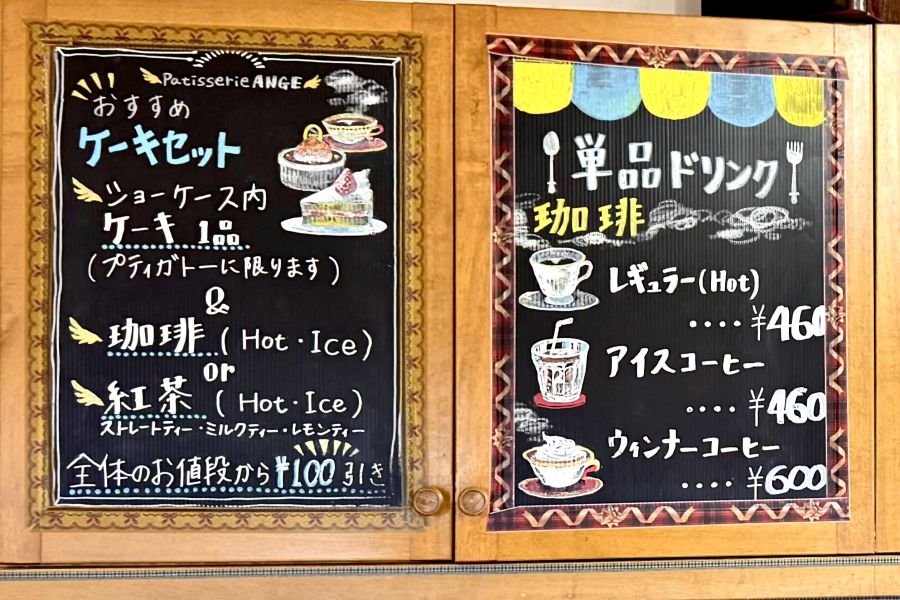 Patisserie ANGE
おすすめ
ケーキセット
ショーケース内
ケーキ 1品
(プティガトーに限ります)
&
珈琲 (Hot・Ice)
or
紅茶 (Hot・Ice)
ストレートティー・ミルクティー・レモンティー
全体のお値段から ¥100 引き
単品ドリンク
珈琲
レギュラー(Hot)
.... ¥460
アイスコーヒー
.... ¥460
ウィンナーコーヒー
.... ¥600